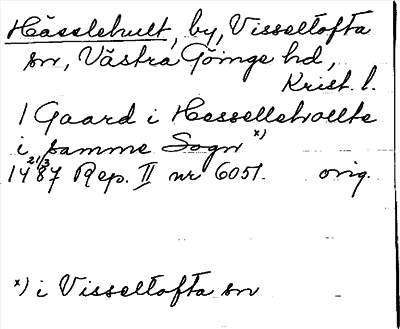 Hässlehult, by, Visseltofta
sn, Västra Göinge hd,
Krist. l.
1 Gaard i Hessellehollte
i samme Sogn x)
1487 21/3 Rep. II nr 6051. orig.
x) i Visseltofta sn